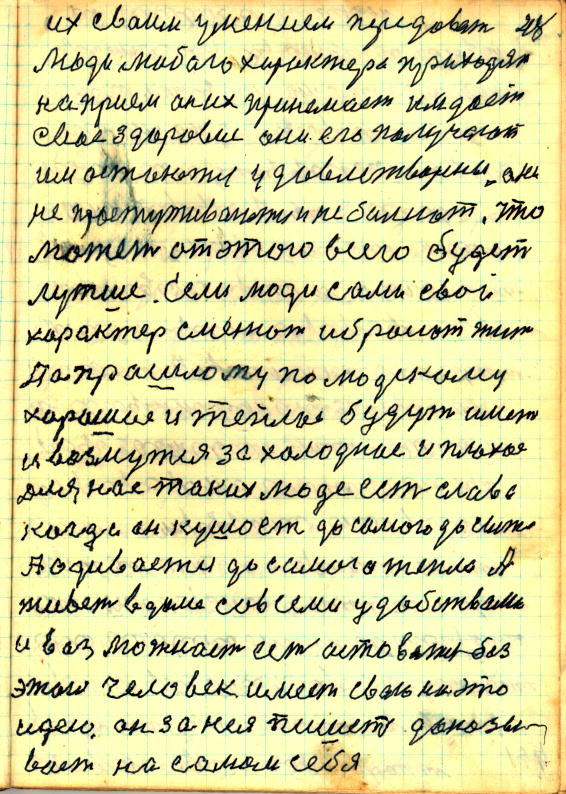 их своим умением передоват 28
Люди любого характера приходят
на прием он их принемает им дает
свое здоровие они его получают
им остаются удовлетворены, они
не простуживаются и не болиют. Что
может от этого всего будет
лутше. Если люди сами свой
характер сменют и броют жит
По прошлому по людскому
хорошое и теплое будут имет
и возмутся за холодное и плохое
Для нас таких люде ест слава
когда он кушоет до самого до сыта
А одивается до самого тепла А
живет в доме со всеми удобствами
и возможност ест оставатся без
этого человек имеет свою на это
идею. он за нея пишет доказы-
вает на самом себя